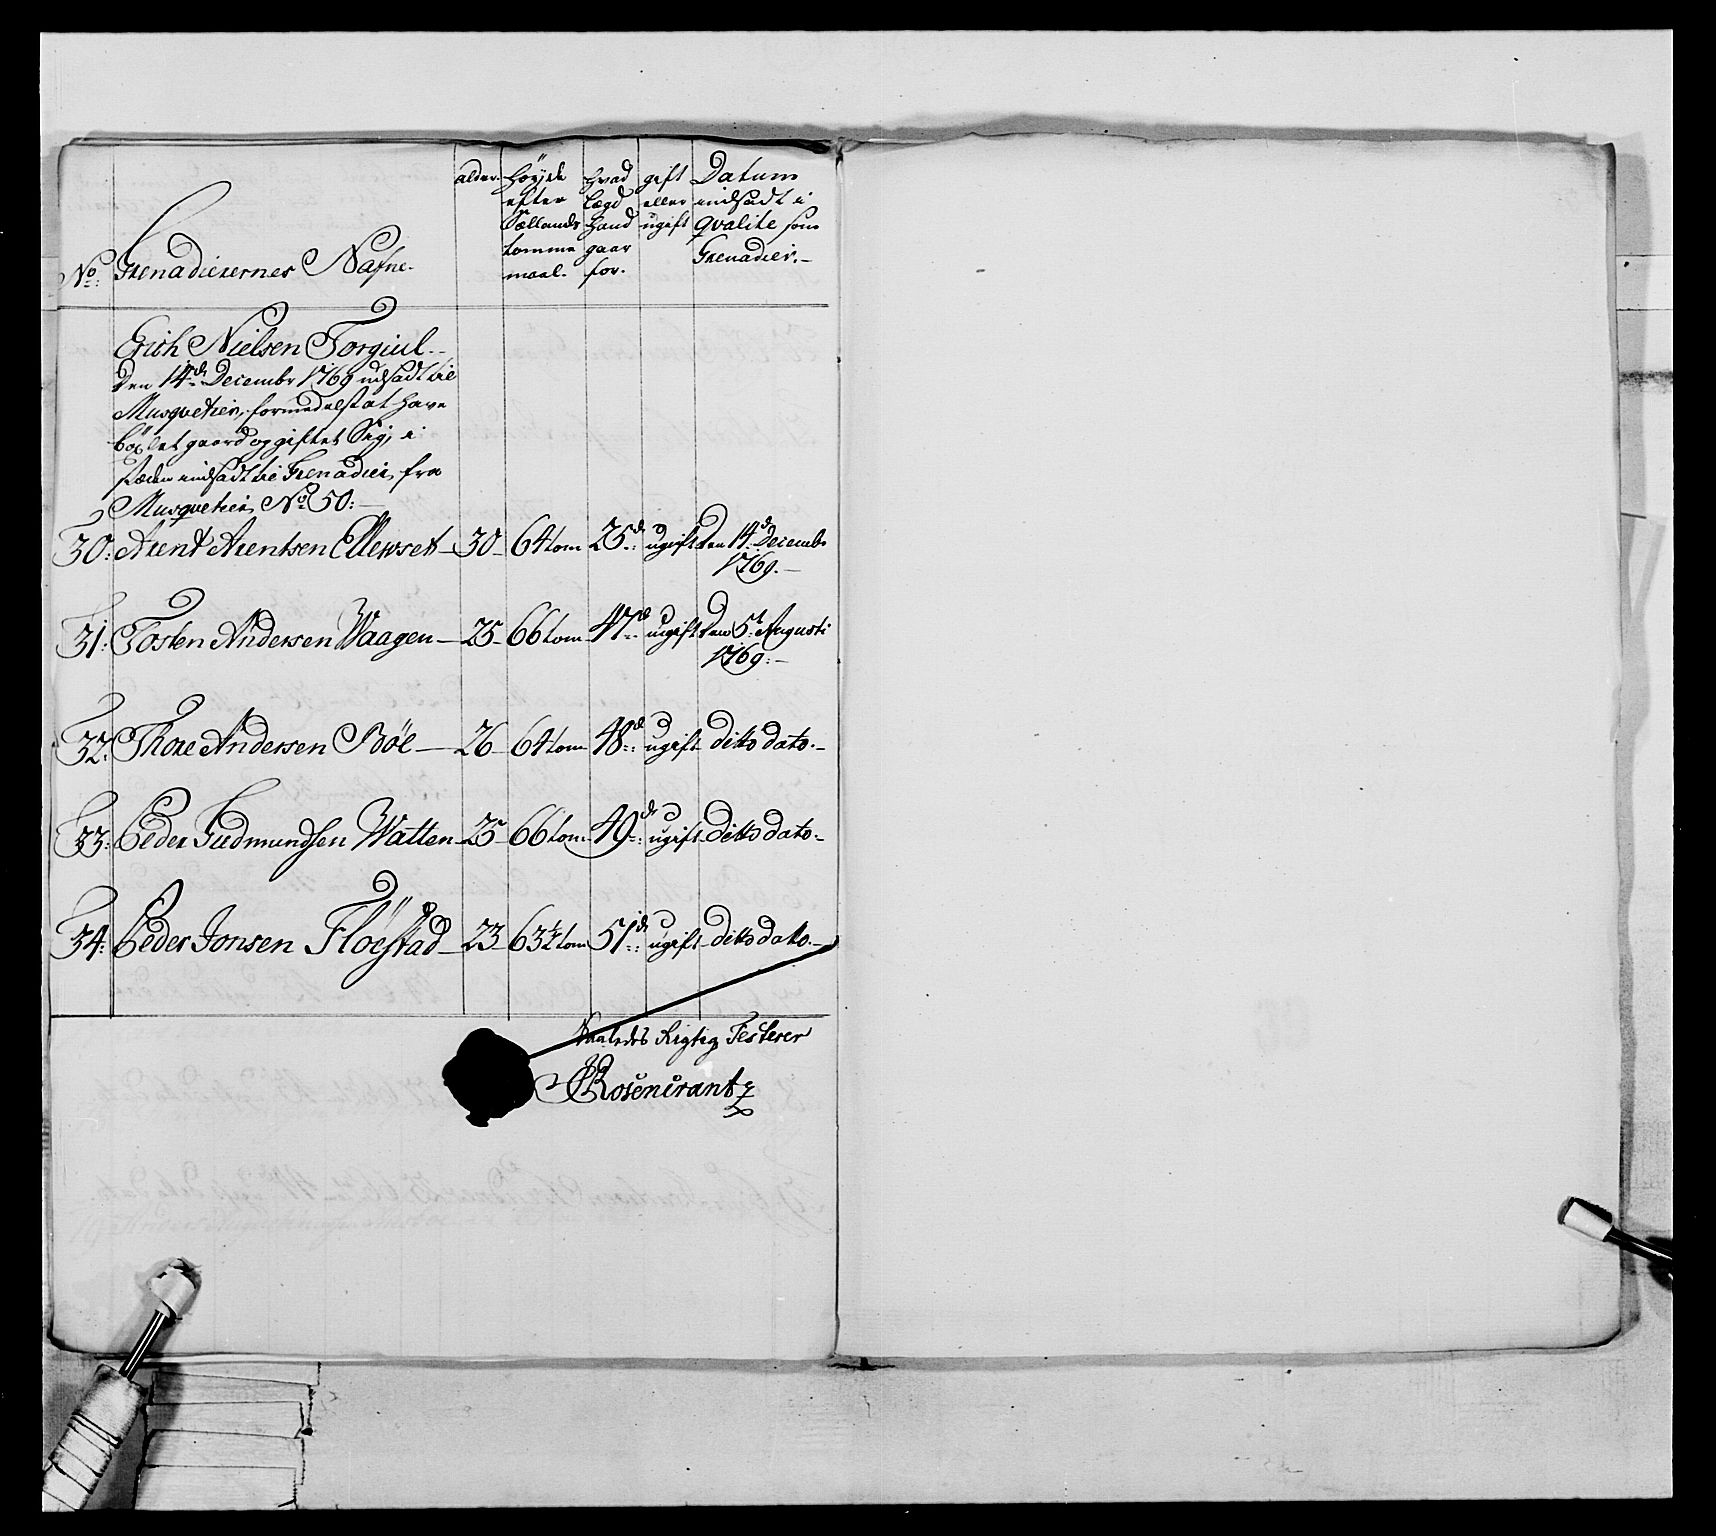 No: Grenadierernes Nafne.
alder.
høyde efter Sællands tomme maal.
hvad Lægd hand gaar for.
gift eller ugift
Datum indsadt i qvalite som Grenadier.
Erich Nielsen Torgiul.
den 14de Decembr 1769 udsadt til
Musqvetier, formedelst at have
böxlet gaard og giftet Sig, i
stæden indsadt til Grenadier, fra
Musqvetier No 50:
30: Arent Arentsen Ellewset 30 64 tom 25de ugift den 14de Decembr
1769.
31: Tosten Andersen Waagen 25 66 tom 47de ugift den 5t Augusti
1769:
32: Thore Andersen Böe 26 64 tom 48de ugift ditto dato.
33: Peder Gudmundsen Watten 25 66 tom 49de ugift ditto dato.
34: Peder Jonsen Flöystad 23 63½ tom 51de ugift ditto dato.
Saaledes Rigtig Testerer
Rosencrantz